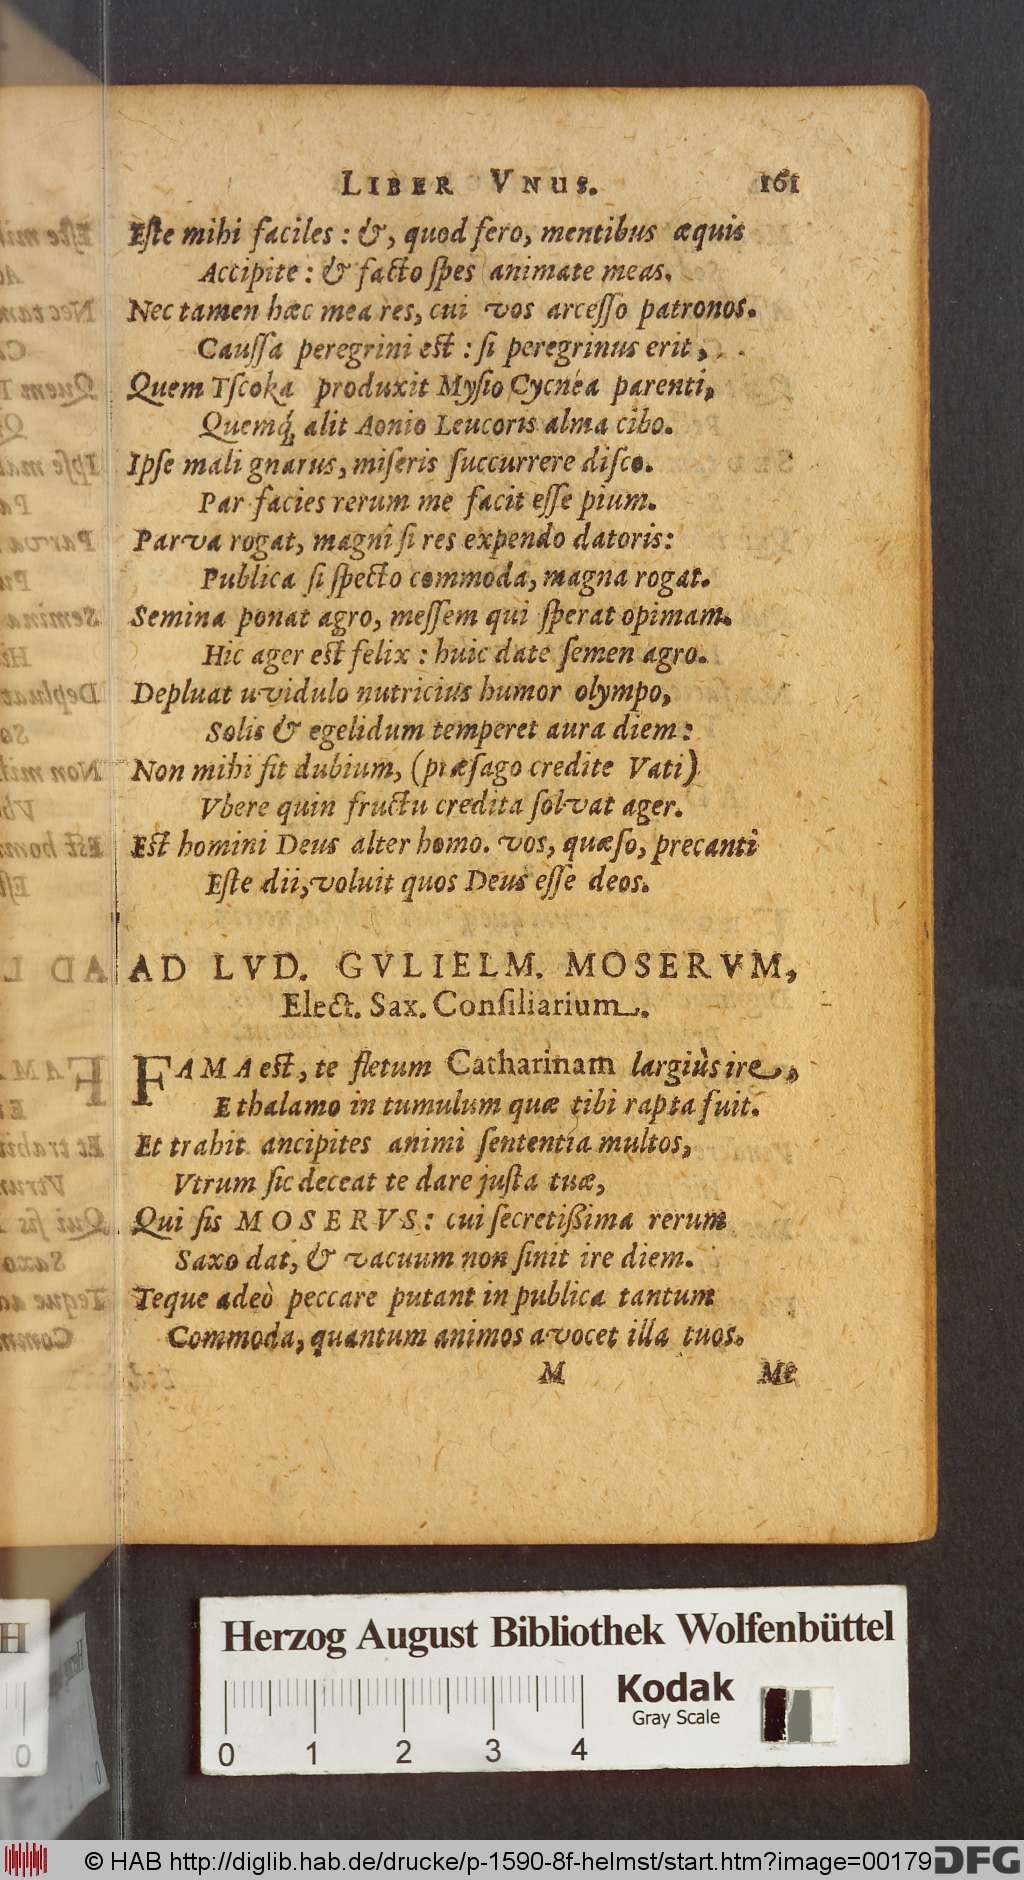 LIBER VNUS. 161
Eſte mihi faciles : &, quod fero, mentibus æquis
Accipite : & facto ſpes animate meas.
Nec tamen hæc mea res, cui vos arceſſo patronos.
Cauſſa peregrini est : ſi peregrinus erit,
Quem Tſcoka produxit Myſio Cycnéa parenti,
Quemq́ alit Aonio Leucoris alma cibo.
Ipſe mali gnarus, miſeris ſuccurrere diſco.
Par facies rerum me facit eſſe pium.
Parva rogat, magni ſi res expendo datoris:
Publica ſi ſpecto commoda, magna rogat.
Semina ponat agro, meſſem qui ſperat opimam.
Hic ager est felix : huic date ſemen agro.
Depluat uvidulo nutricius humor olympo,
Solis & egelidum temperet aura diem:
Non mihi ſit dubium, (præſago credite Vati)
Vbere quin fructu credita ſolvat ager.
Est homini Deus alter homo. vos, quæſo, precanti
Eſte dii, voluit quos Deus eſſe deos.
AD LVD. GVLIELM. MOSERVM,
Elect. Sax. Conſiliarium.
FAMA est, te fletum Catharinam largiùs ire,
E thalamo in tumulum quæ tibi rapta fuit.
Et trahit ancipites animi ſententia multos,
Vtrum ſic deceat te dare juſta tuæ,
Qui ſis MOSERVS: cui ſecretißima rerum
Saxo dat, & vacuum non ſinit ire diem.
Teque adeò peccare putant in publica tantum
Commoda, quantum animos avocet illa tuos.
M Me
Herzog August Bibliothek Wolfenbüttel
Kodak
Gray Scale
0 1 2 3 4
© HAB http://diglib.hab.de/drucke/p-1590-8f-helmst/start.htm?image=00179
DFG